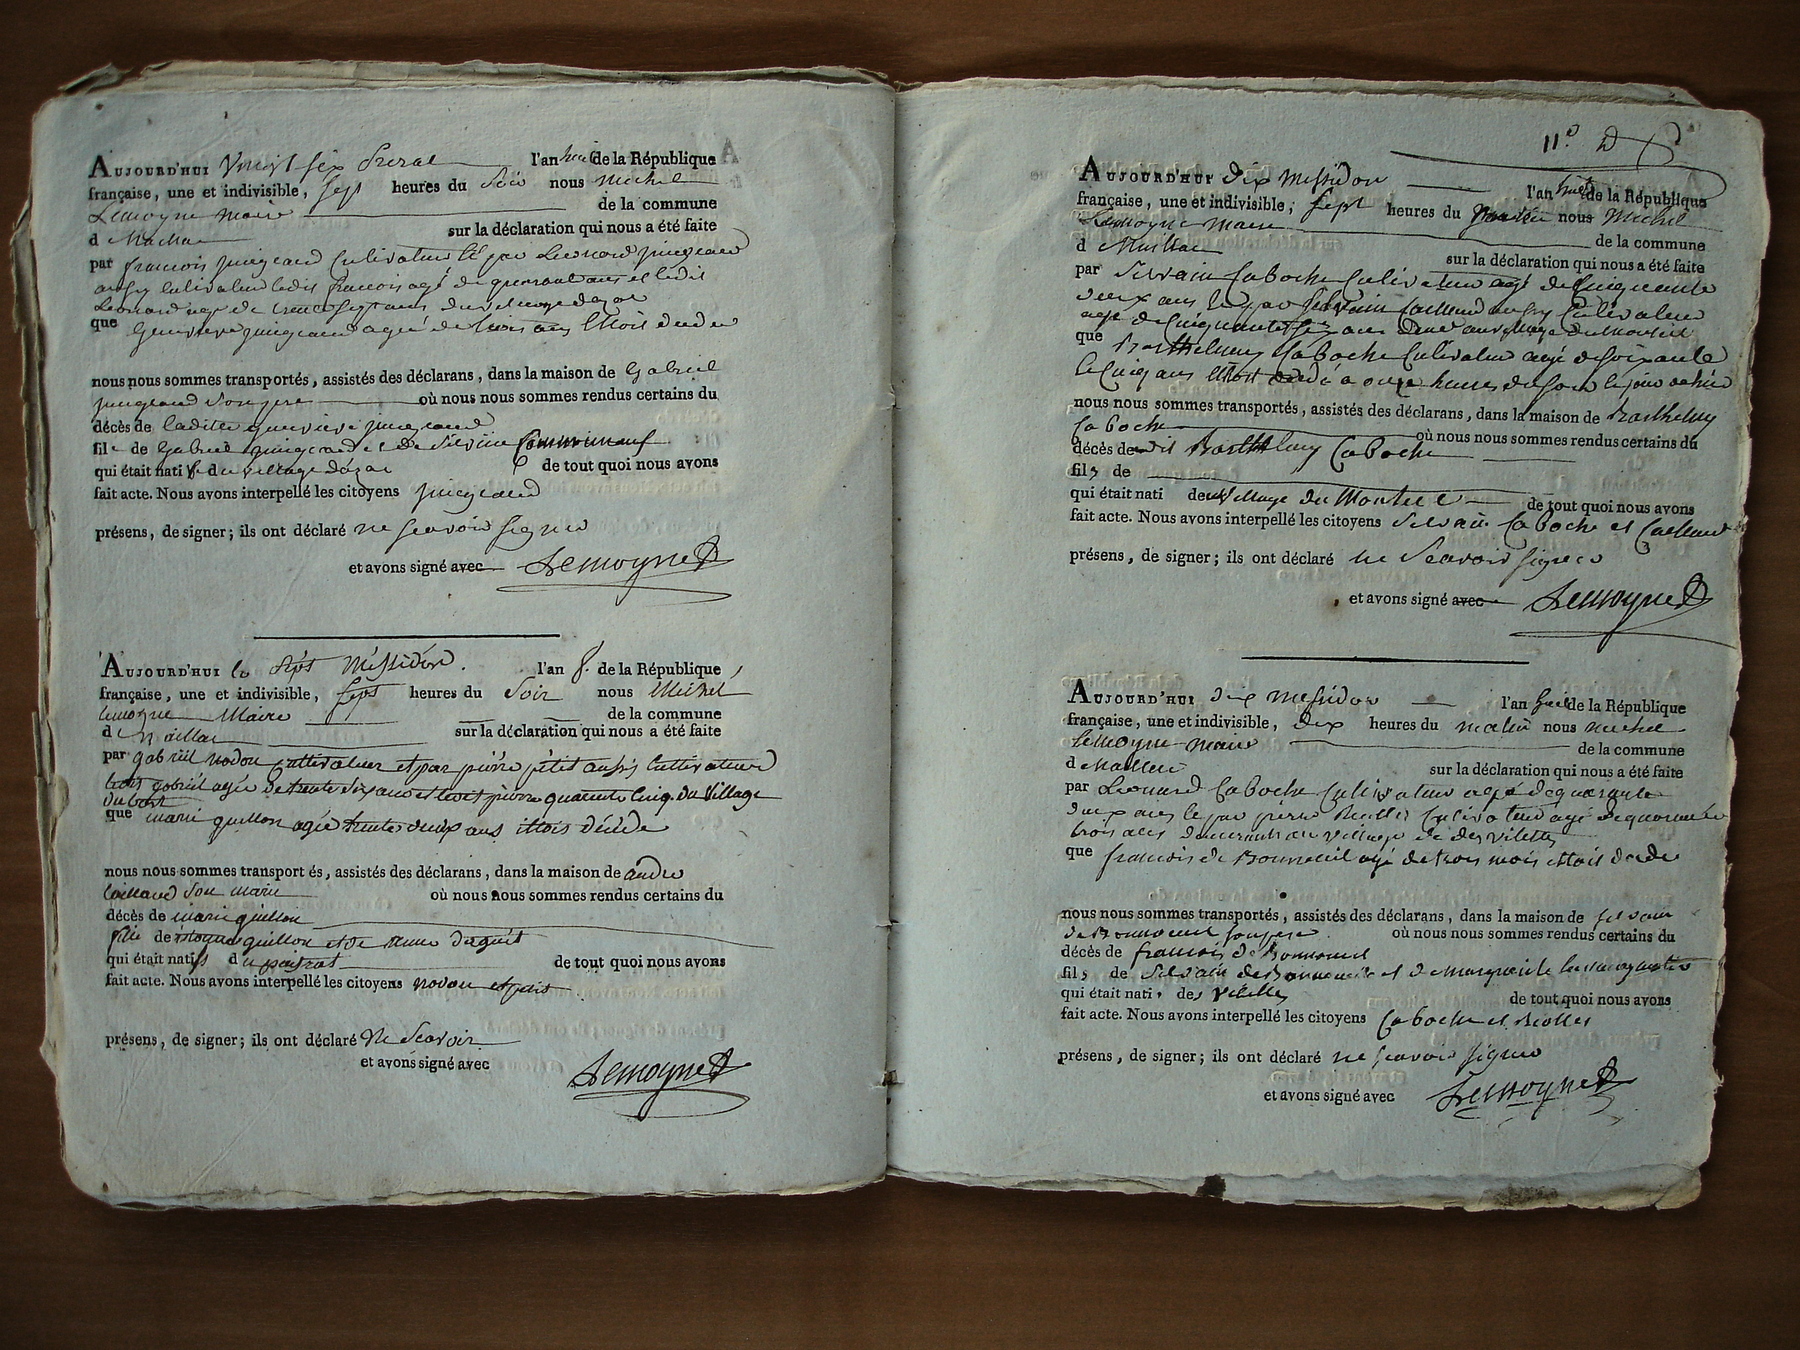 AUJOURD'HUI Vingt six Prerial l'an huit de la République
française, une et indivisible, sept heures du Soir nous Michel
Lemoyne maire de la commune
d Maillac sur la déclaration qui nous a été faite
par francois jungeaud Cultivateur et par Leonard jungeaud
aussy Cultivateur ledit francois agé de quarante ans et ledit
Leonard agé de trente sept ans du village dazac
que Genevieve jungeaud agée de trois ans Ettoit deedee
nous nous sommes transportés, assistés des déclarans, dans la maison de Gabriel
jungeaud Son pere où nous nous sommes rendus certains du
décès de laditte genevieve jungeaud
fil de Gabriel jungeaud et de Silvine
qui était nati f du village dazac de tout quoi nous avons
fait acte. Nous avons interpellé les citoyens jungeaud
présens, de signer; ils ont déclaré ne scavoir signer
et avons signé avec Lemoyne
AUJOURD'HUI le Sept Messidor l'an 8. de la République
française, une et indivisible, sept heures du Soir nous Michel
lemoyne Maire de la commune
d Maillac sur la déclaration qui nous a été faite
par gabriel nadou Cultivateur et par pierre petit aussi Cultivateur
ledit gabriel agée de trente six ans et ledit pierre quarente cinq du Village
du bost
que marie guillon agée trente deux ans ettois décéde
nous nous sommes transport és, assistés des déclarans, dans la maison de andre
Caillaud Son marie où nous nous sommes rendus certains du
décès de marie guillon
fille de guillon et de
qui était natifs du de tout quoi nous avons
fait acte. Nous avons interpellé les citoyens nadou et petit
présens, de signer; ils ont déclaré Ne Scavoir
et avons signé avec Lemoyne
11e D
AUJOURD'HUI dix Messidor l'an huit de la République
française, une et indivisible, sept heures du nous Michel
Lemoyne Maire de la commune
d Maillac sur la déclaration qui nous a été faite
par Silvain Caboche Cultivateur agé de Cinquante
deux ans et par Silvain Caillaud aussy Cultivateur
agé de Cinquante six ans du village du Monteil
que Barthelemy Caboche Cultivateur agé de soixante
et Cinq ans Ettoit dcedé a onze heures du soir le jour de hier
nous nous sommes transportés, assistés des déclarans, dans la maison de Barthelemy
Caboche où nous nous sommes rendus certains du
décès de dit Barthelemy Caboche
fils de
qui était nati du village du Monteil de tout quoi nous avons
fait acte. Nous avons interpellé les citoyens Silvain Caboche et Caillaud
présens, de signer; ils ont déclaré ne Scavoir signer
et avons signé avec Lemoyne
AUJOURD'HUI dix Messidor l'an huit de la République
française, une et indivisible, dix heures du matin nous michel
lemoyne maire de la commune
d Maillac sur la déclaration qui nous a été faite
par Leonard Caboche Cultivateur agé de quarante
deux ans et par pierre Cultivateur agé de quarante
trois ans demeurant au village de des vilettes
que francois de Bonneuil agé de trois mois ettoit decede
nous nous sommes transportés, assistés des déclarans, dans la maison de silvain
de Bonneuil son pere où nous nous sommes rendus certains du
décès de francois de Bonneuil
fils de Silvain de Bonneuil et de Marguerite
qui était nati. des Vilettes de tout quoi nous avons
fait acte. Nous avons interpellé les citoyens Caboche et
présens, de signer; ils ont déclaré ne scavoir signer
et avons signé avec Lemoyne